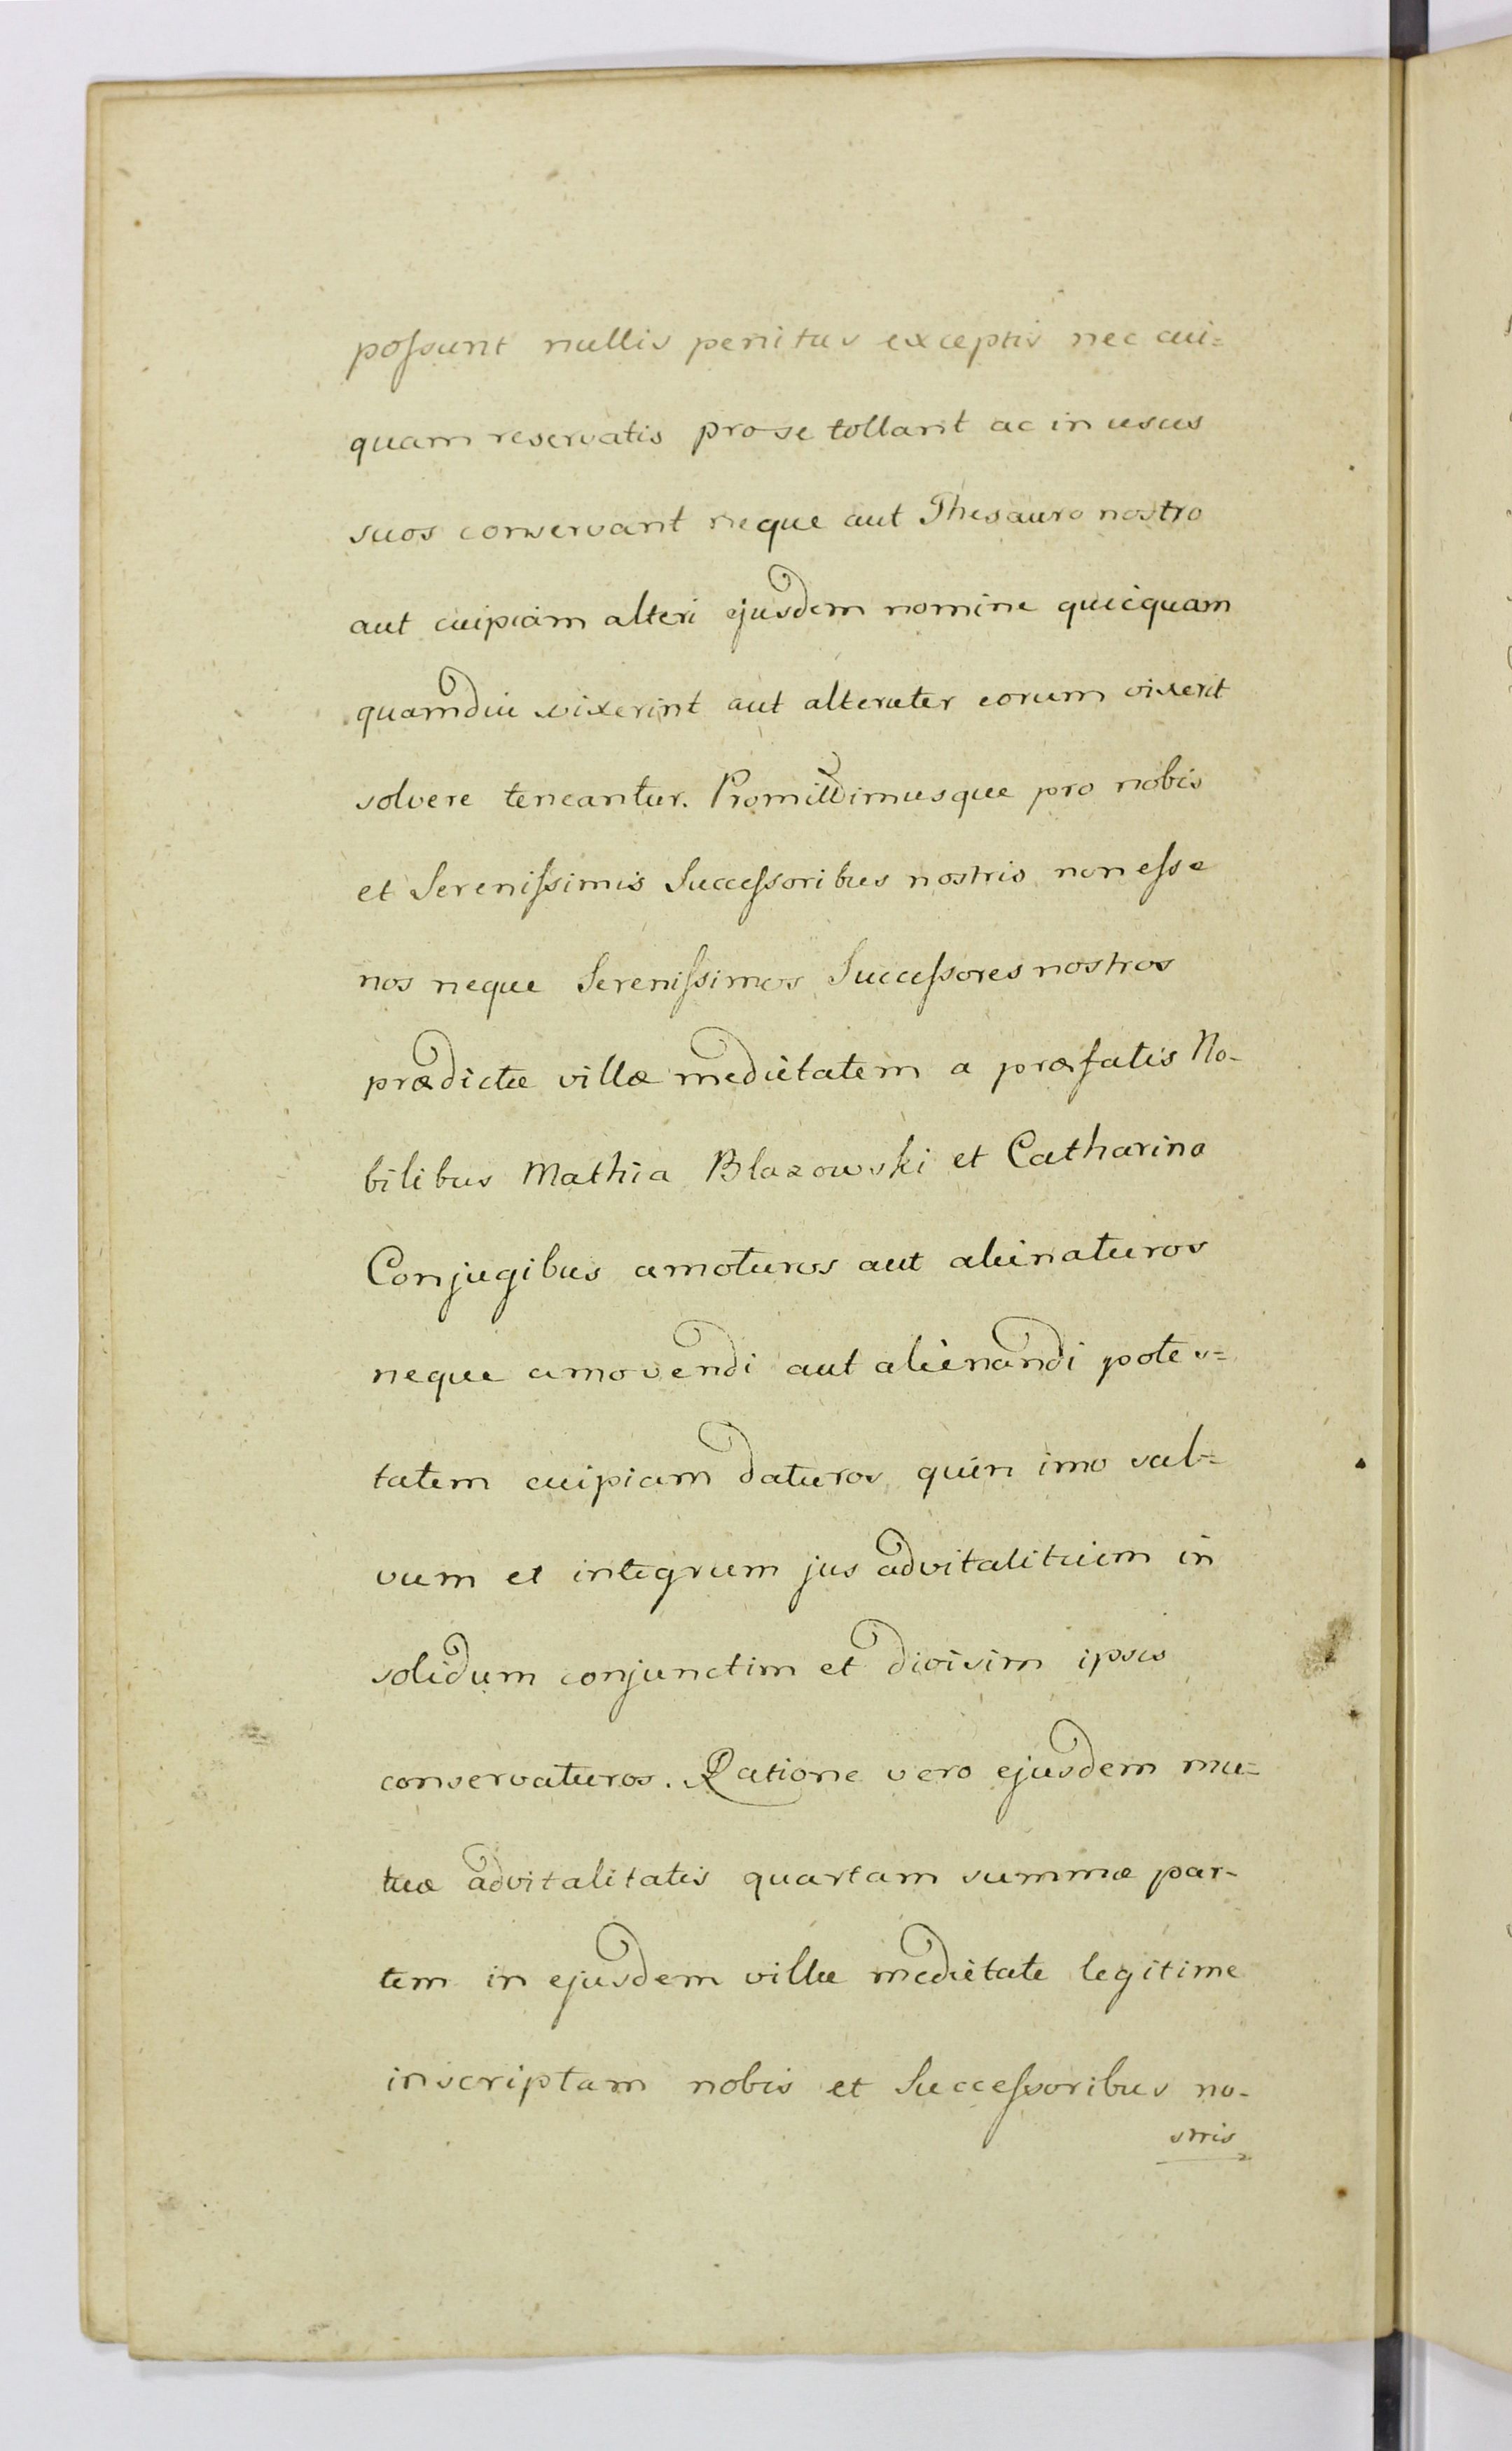 poſsunt nullis penitus exceptis nec cui=
quam reservatis pro se tollant ac in usus
suos conservant neque aut Thesauro nostro
aut cuipiam alteri ejusdem nomine quicquam
quamdiu vixerint aut alteruter eorum vixerit
solvere teneantur. Promittimusque pro nobis
et Sereniſsimis Succeſsoribus nostris non eſse
nos neque Sereniſsimos Succeſsores nostros
prædictæ villæ medietatem a præfatis No-
bilibus Mathia Blazowski et Catharina
Conjugibus amoturos aut alienaturos
neque amovendi aut alienandi potes=
tatem cuipiam daturos, quin imo sal=
vum et integrum jus advitalitium in
solidum conjunctim et divisim ipsis
conservaturos. Ratione vero ejusdem mu=
tuæ advitalitatis quartam summæ par-
tem in ejusdem villæ medietate legitime
inscriptam nobis et Succeſsoribus no-
stris